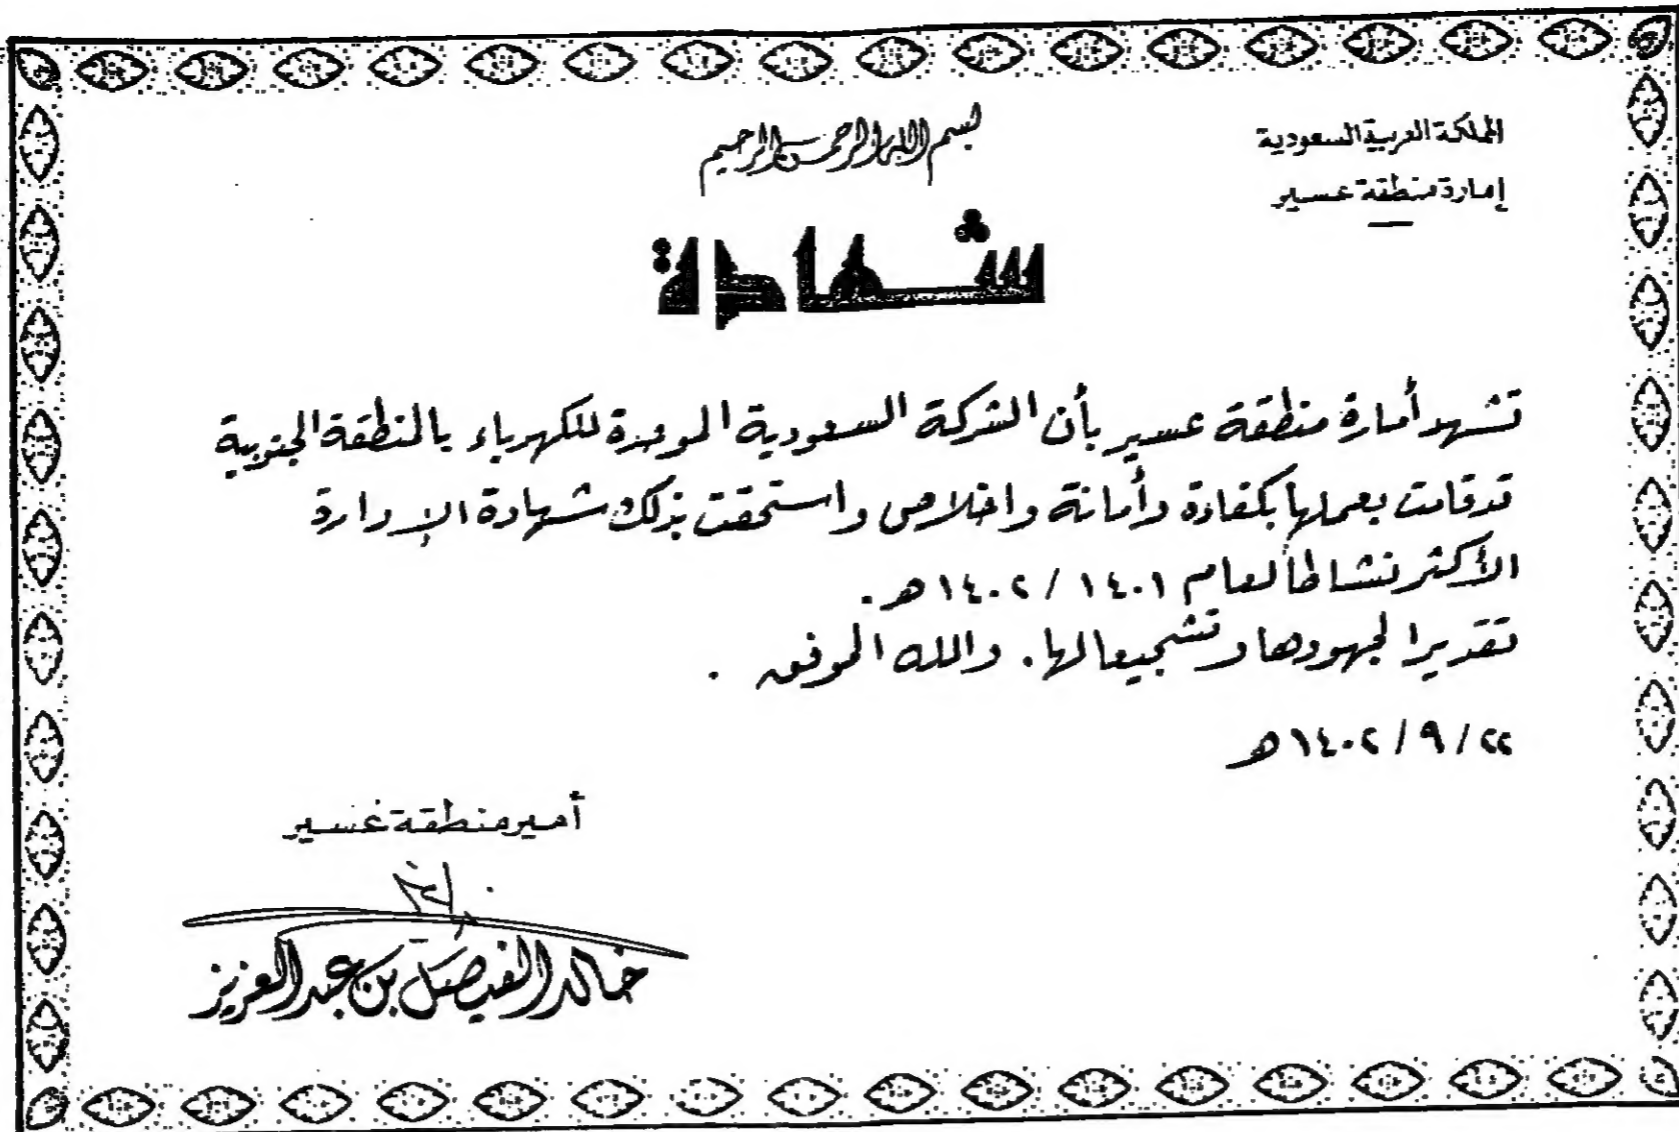 المملكة العربية السعودية
إمارة منطقة عسير
بسم الله الرحمن الرحيم
شهادة
تشهد أمارة منطقة عسير بأن الشركة السعودية الموحدة للكهرباء بالمنطقة الجنوبية
قد قامت بعملها بكفاءة وأمانة واخلاص واستحقت بذلك شهادة الإدارة
الأكثر نشاطاً لعام ١٤٠١ / ١٤٠٢ هـ .
تقديرا لجهودها وتشجيعا لها . والله الموفق .
٢٢ / ٩ / ١٤٠٢ هـ
أمير منطقة عسير
خالد الفيصل بن عبد العزيز